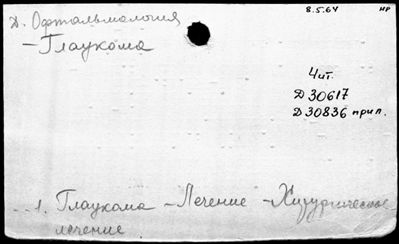 Д. Офтальмология
8.5.64 нр
-Глаукома
Чит.
Д 30617
Д 30836 прил.
1. Глаукома -Лечение -Хирургическое
лечение